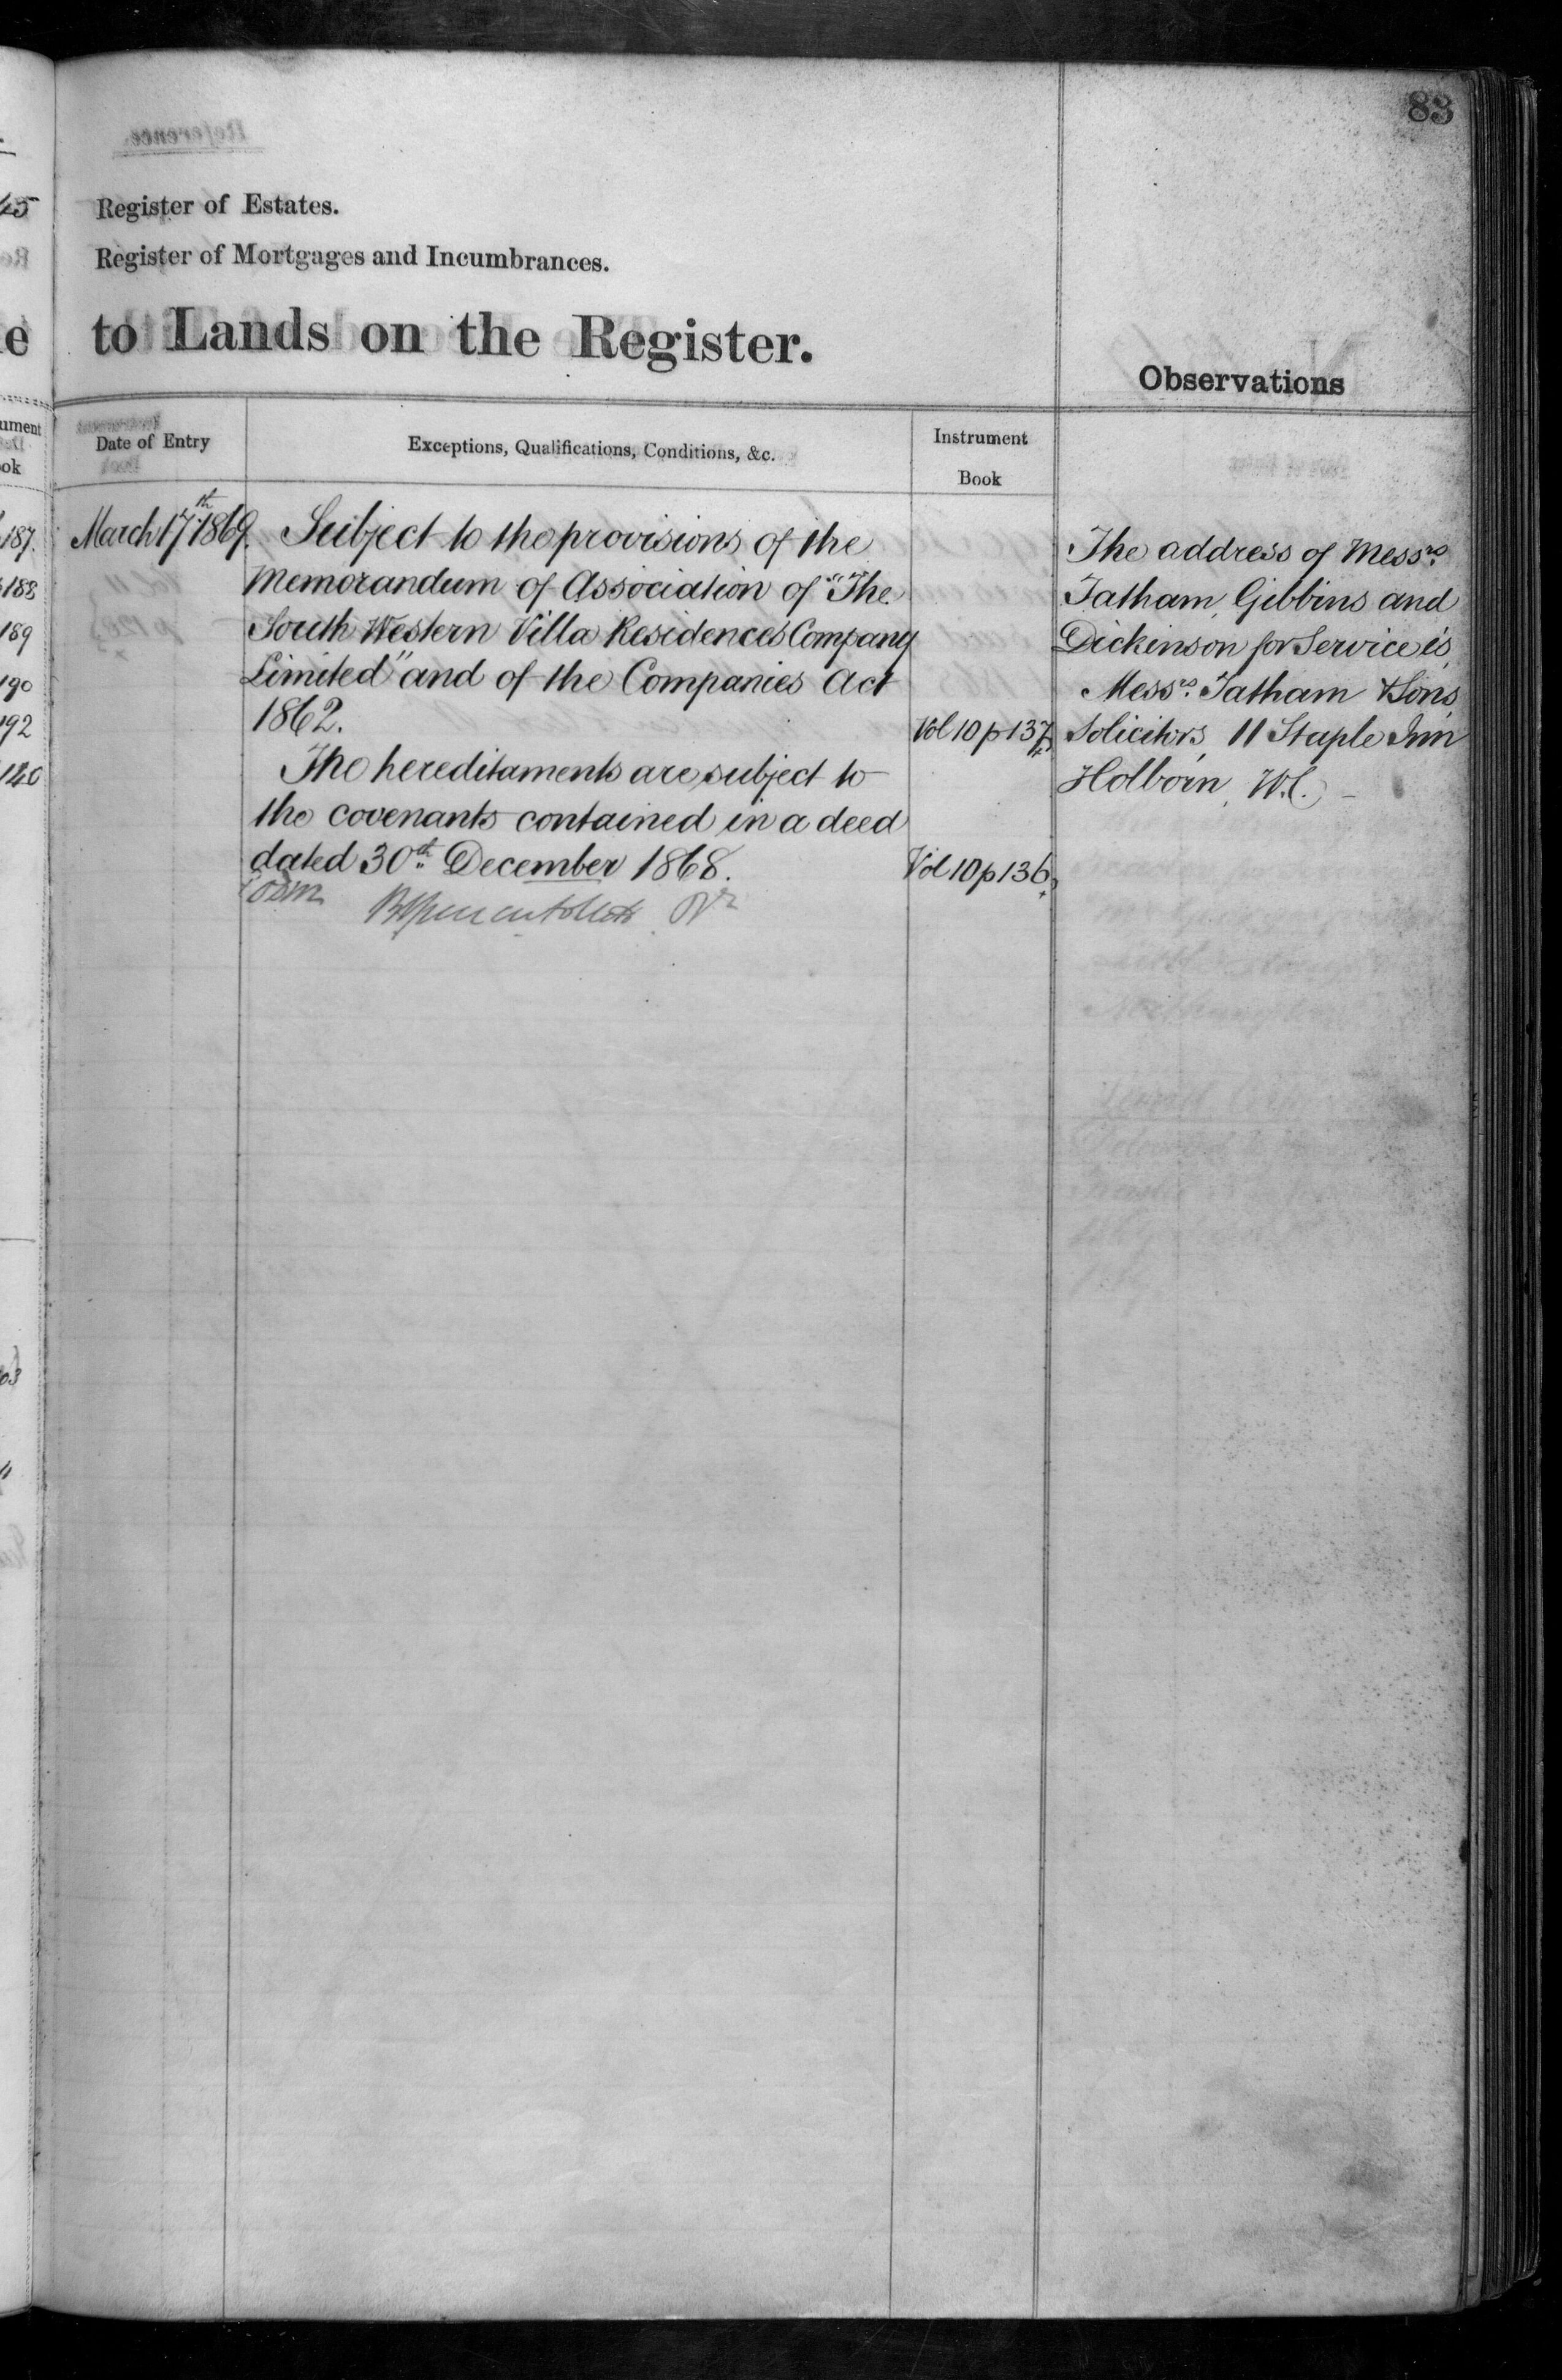 83
Register of Estates.
Register of Mortgages and Incumbrances.
to Lands on the Register.
Observations
Date of Entry
Exceptions, Qualifications, Conditions, &c.
Instrument
Book
March 17th 1869.
Subject to the provisions of the
Memorandum of Association of "The
South Western Villa Residences Company
Limited" and of the Companies Act
1862.
Vol 10 p 137
The hereditaments are subject to
the covenants contained in a deed
dated 30th December 1868.
Vol 10 p 136
The address of Messrs.
Tatham, Gibbins and
Dickinson for Service is
Messrs. Tatham & Sons
Solicitors 11 Staple Inn
Holborn, W.C.
ument
ok
187.
188
189
190
192